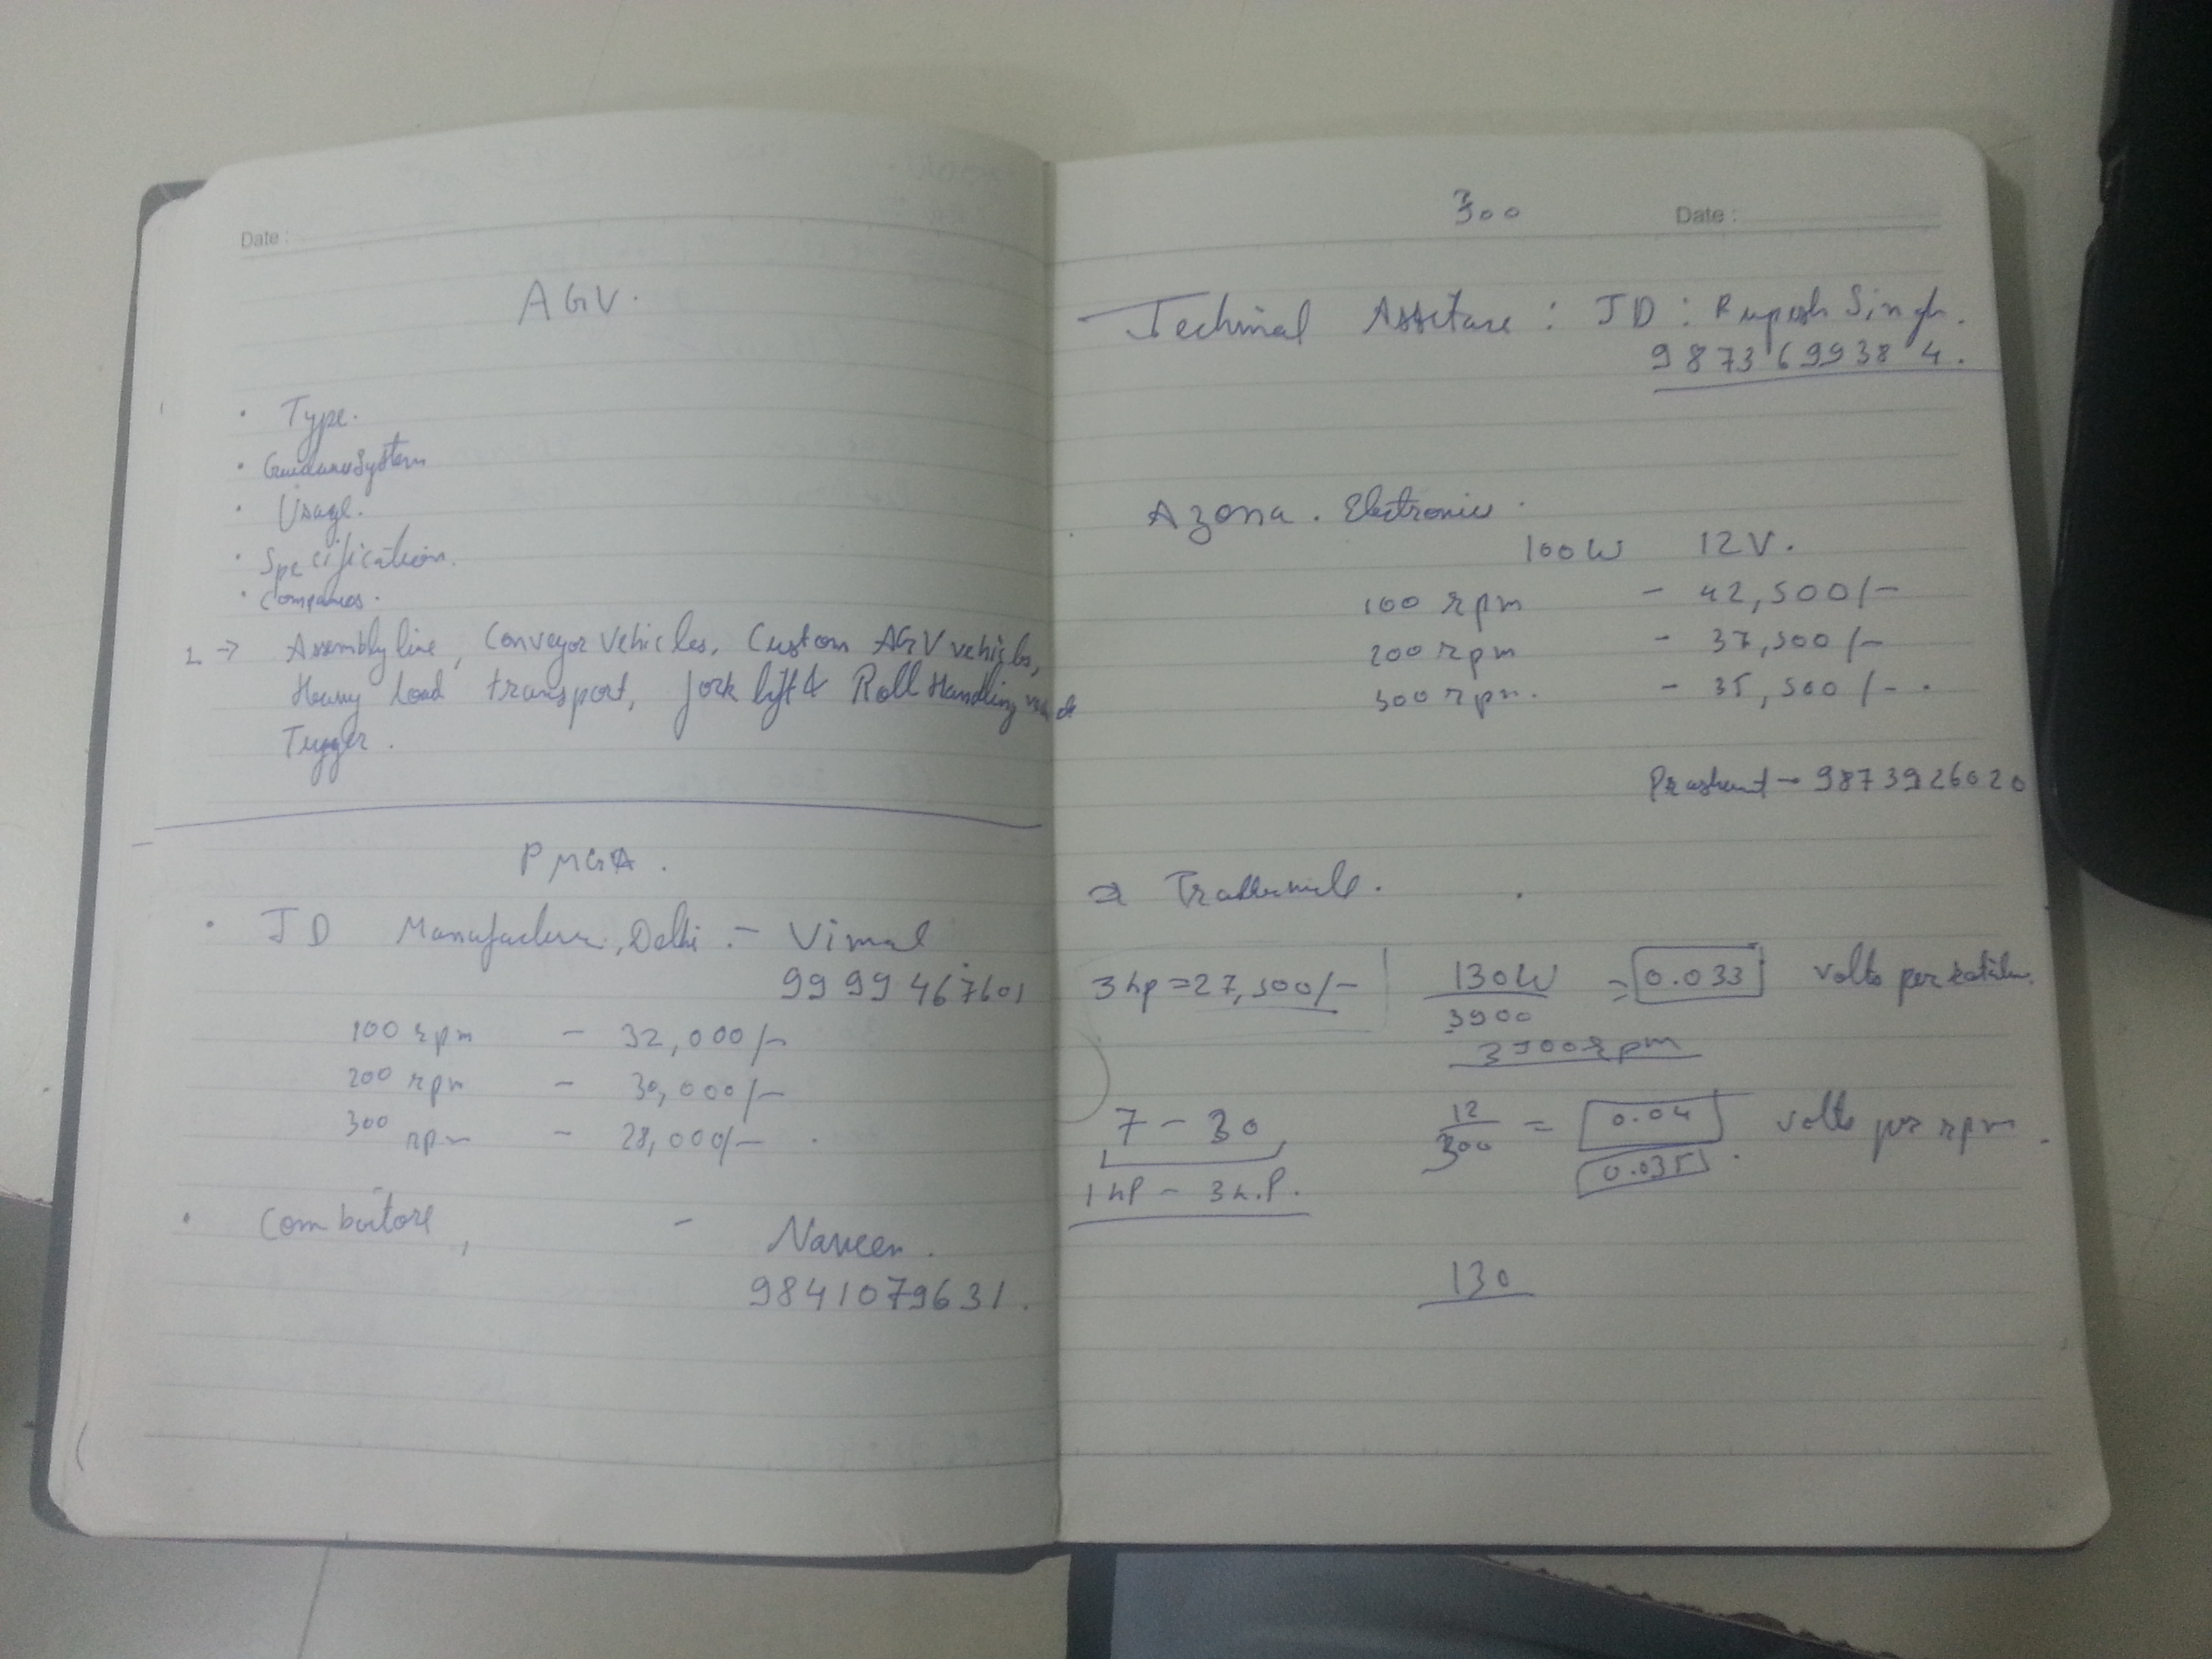 Date :
AGV.
· Type.
· Guidance System
· Usage.
· Specification.
· Companies.
1. → Assembly line, Conveyor Vehicles, Custom AGV vehicles,
Heavy load transport, fork lift & Roll Handling
Tugger.
PMGA.
· JD Manufacturer, Delhi :- Vimal
9999467601
100 rpm - 32,000/-
200 rpm - 30,000/-
300 rpm - 28,000/-
· Comboitore, - Naveen.
9841079631.
300 Date :
Techinal Assitase : JD : Rupesh Singh.
9873699384.
Azona. Electronics.
100W 12V.
100 rpm - 42,500/-
200 rpm - 37,500/-
300 rpm. - 35,500/-.
Prashant → 9873926020
3hp = 27,500/- 130W = 0.033 volts per
3900
3900 rpm
7 - 30 12 = 0.04 volts per rpm.
300
0.035
1hP - 3h.P.
130